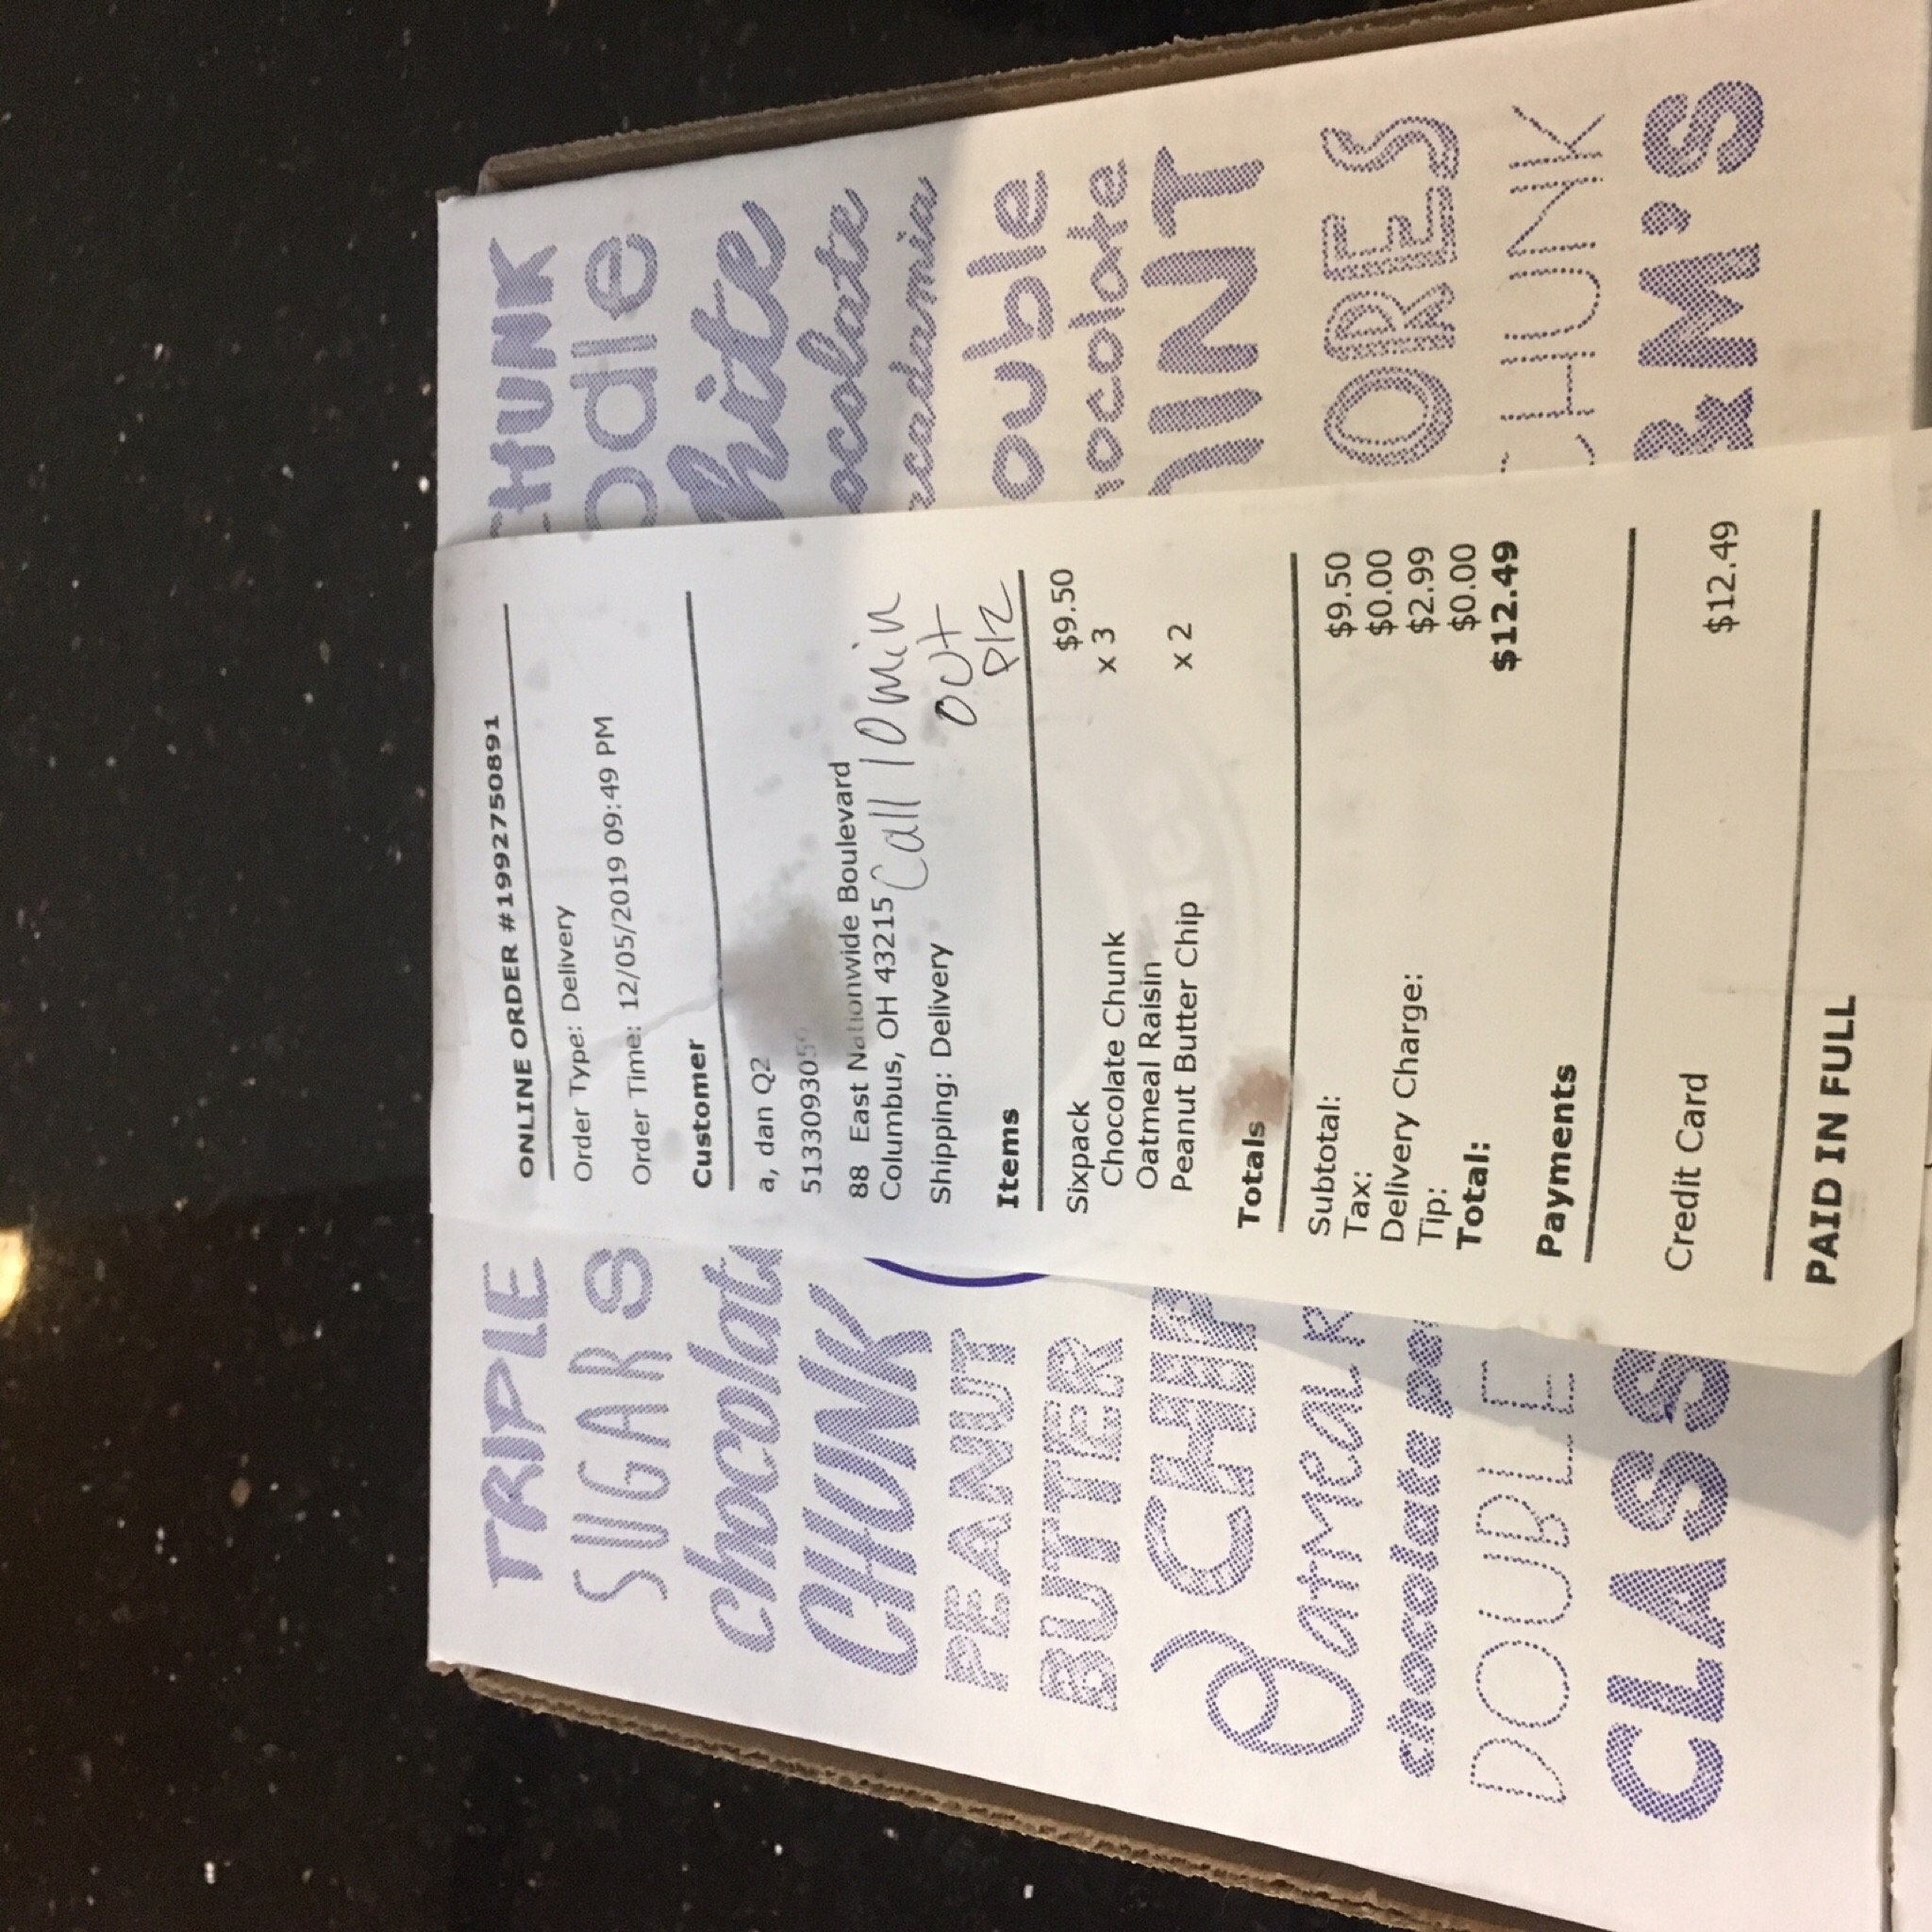 TRIPLE CHUNK
SUGAR
chocolate
CHUNK
PEANUT
BUTTER
CHIP
OaTMEAL
chocolate
DOUBLE CHUNK
CLASS & M'S
ouble
MINT
ONLINE ORDER #1992750891
Order Type: Delivery
Order Time: 12/05/2019 09:49 PM
Customer
a, dan Q2
513309305
88 East Nationwide Boulevard
Columbus, OH 43215 Call 10 min
Shipping: Delivery out
plz
Items
Sixpack $9.50
Chocolate Chunk x 3
Oatmeal Raisin
Peanut Butter Chip x 2
Totals
Subtotal: $9.50
Tax: $0.00
Delivery Charge: $2.99
Tip: $0.00
Total: $12.49
Payments
Credit Card $12.49
PAID IN FULL